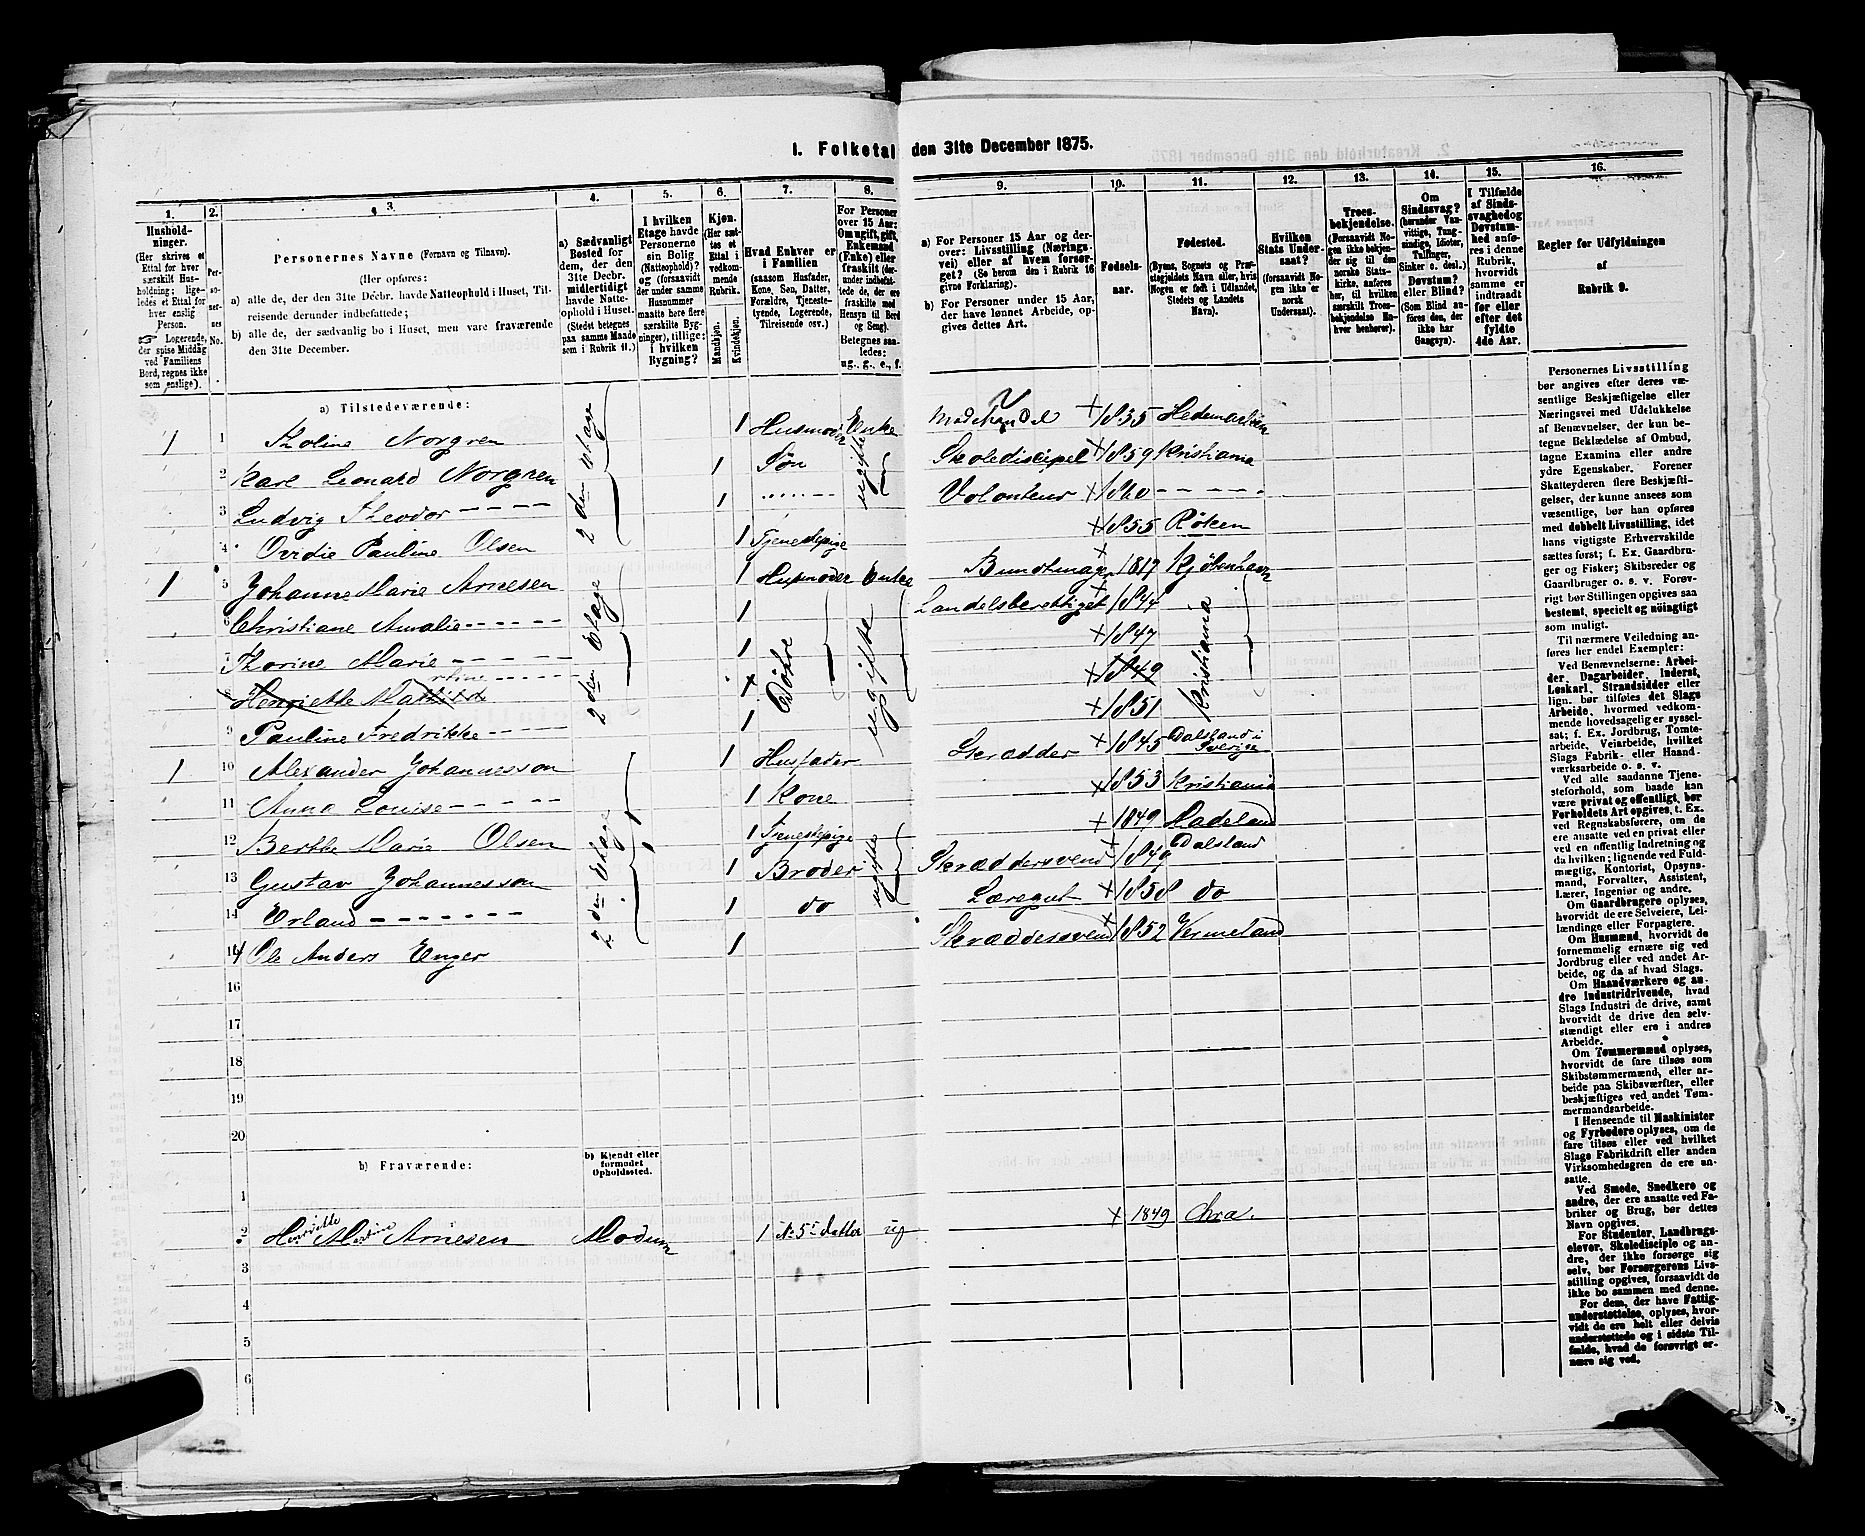 1. Folketal den 31te December 1875.
1.
2.
3.
4.
5.
6.
7.
8.
9.
10.
11.
12.
13.
14.
15.
16.
Hushold-
ninger.
(Her skrives et
Ettal for hver
særskilt Hus-
holdning; lige-
ledes et Ettal for
hver enslig
Person.
☞ Logerende,
der spise Middag
ved Familiens
Bord, regnes ikke
som enslige).
Per-
so-
ner-
nes
No.
Personernes Navne (Fornavn og Tilnavn).
(Her opføres:
a) alle de, der den 31te Decbr. havde Natteophold i Huset, Til-
reisende derunder indbefattede;
b) alle de, der sædvanlig bo i Huset, men vare fraværende
den 31te December.
a) Sædvanligt
Bosted for
dem, der den
31te Decbr.
midlertidigt
havde Natte-
ophold i Huset.
(Stedet betegnes
paa samme Maade
som i Rubrik 11.)
I hvilken
Etage havde
Personerne
sin Bolig
(Natteophold)?
og (forsaavidt
der under samme
Husnummer
maatte høre flere
særskilte Byg-
ninger), tillige:
i hvilken
Bygning?
Kjøn.
(Her sæt-
tes et
Ettal i
vedkom-
mende
Rubrik.
Mandkjøn.
Kvindekjøn.
Hvad Enhver er
i Familien
(saasom Husfader,
Kone, Søn, Datter,
Forældre, Tjeneste-
tyende, Logerende,
Tilreisende osv.)
For Personer
over 15 Aar:
Om ugift, gift,
Enkemand
(Enke) eller
fraskilt (der-
under indbefat-
tede de, der ere
fraskilte med
Hensyn til Bord
og Seng).
Betegnes saa-
ledes:
ug., g., e., f.
a) For Personer 15 Aar og der-
over: Livsstilling (Nærings-
vei) eller af hvem forsør-
get? (Se herom den i Rubrik 16
givne Forklaring).
b) For Personer under 15 Aar,
der have lønnet Arbeide, op-
gives dettes Art.
Fødsels-
aar.
Fødested.
(Byens, Sognets og Præ-
stegjeldets Navn eller, hvis
Nogen er født i Udlandet,
Stedets og Landets
Navn).
Hvilken
Stats Under-
saat?
(forsaavidt No-
gen ikke er
norsk
Undersaat).
Troes-
bekjendelse.
(Forsaavidt No-
gen ikke bekjen-
der sig til den
norske Stats-
kirke, anføres
her, til hvilken
særskilt Troes-
bekjendelse En-
hver henhører).
Om
Sindssvag?
(herunder Van-
vittige, Tung-
sindige, Idioter,
Tullinger,
Sinker o. desl.)
Døvstum?
eller Blind?
(Som Blind an-
føres den, der
ikke har
Gangsyn).
I Tilfælde
af Sinds-
svaghed og
Døvstum-
hed anfø-
res i denne
Rubrik,
hvorvidt
samme er
indtraadt
før eller
efter det
fyldte
4de Aar.
Regler for Udfyldningen
af
Rubrik 9.
a) Tilstedeværende:
1 1 Tholine Norgren 2 den Etage 1 Husmoder Enke Modehandel 1835 Hedemarken
2 Karl Leonard Norgren 1 Søn ugifte Skolediscipel 1859 Kristiania
3 Ludvig Theodor – – – – 1 Volonteur 1860 – – – – –
4 Ovidie Pauline Olsen 1 Tjenestepige 1855 Røken
1 5 Johanne Marie Arnesen 2 den Etage 1 Husmoder Enke Buntmager 1817 Kjøbenhavn
6 Christiane Amalie – – – – – 1 Døtre ugifte 1844 Kristiania
7 Thorine Marie – – – – – 1 1847
8 Henriette 1849
9 Pauline Fredrikke – – – 1 1851
1 10 Alexander Johannesson 2 den Etage 1 Husfader Skrædder 1845 Dalsland i Sverige
11 Anna Louise – – – – – 1 Kone 1853 Kristiania
12 Berthe Marie Olsen 1 Tjenestepige ugifte 1849 Hadeland
13 Gustav Johannesson 1 Broder Skræddersvend 1849 Dalsland
14 Erland – – – – – – – 1 do Læregut 1858 do
Ole Anders Enger 1 Skræddersvend 1852 Vermeland
16
17
18
19
20
b) Fraværende:
b) Kjendt eller
formodet
Opholdssted.
1
2 Henriette Martine Arnesen Modum 1 No 5s datter ug 1849 Chra.
3
4
5
6
Personernes Livsstilling
bør angives efter deres væ-
sentlige Beskjæftigelse eller
Næringsvei med Udelukkelse
af Benævnelser, der kun be-
tegne Beklædelse af Ombud,
tagne Examina eller andre
ydre Egenskaber. Forener
Skatteyderen flere Beskjæfti-
gelser, der kunne ansees som
væsentlige, bør han opføres
med dobbelt Livsstilling, idet
hans vigtigste Erhvervskilde
sættes først; f. Ex. Gaardbru-
ger og Fisker; Skibsreder og
Gaardbruger o. s. v. Forøv-
rigt bør Stillingen opgives saa
bestemt, specielt og nøiagtigt
som muligt.
Til nærmere Veiledning an-
føres her endel Exempler:
Ved Benævnelserne: Arbei-
der, Dagarbeider, Inderst,
Løskarl, Strandsidder eller
lign. bør tilføies det Slags
Arbeide, hvormed vedkom-
mende hovedsagelig er syssel-
sat; f. Ex. Jordbrug, Tomte-
arbeide, Veiarbeide, hvilket
Slags Fabrik- eller Haand-
værksarbeide o. s. v.
Ved alle saadanne Tjene-
steforhold, som baade kan
være privat og offentligt, bør
Forholdets Art opgives, t. Ex.
ved Regnskabsførere, om de
ere ansatte ved en privat eller
en offentlig Indretning og
da hvilken; lignende ved Fuld-
mægtig, Kontorist, Opsyns-
mand, Forvalter, Assistent,
Lærer, Ingeniør og andre.
Om Gaardbrugere oplyses,
hvorvidt de ere Selveiere, Lei-
lændinge eller Forpagtere.
Om Husmænd, hvorvidt de
fornemmelig ernære sig ved
Jordbrug eller ved andet Ar-
beide, og da af hvad Slags.
Om Haandværkere og an-
dre Industridrivende, hvad
Slags Industri de drive, samt
hvorvidt de drive den selv-
stændigt eller ere i andres
Arbeide.
Om Tømmermænd oplyses,
hvorvidt de fare tilsøs som
Skibstømmermænd, eller ar-
beide paa Skibsværfter, eller
beskjæftiges ved andet Tøm-
mermandsarbeide.
I Henseende til Maskinister
og Fyrbødere oplyses, om de
fare tilsøs eller ved hvilket
Slags Fabrikdrift eller anden
Virksomhedsgren de ere an-
satte.
Ved Smede, Snedkere og
andre, der ere ansatte ved Fa-
briker og Brug, bør dettes
Navn opgives.
For Studenter, Landbrugs-
elever, Skoledisciple og an-
dre, der ikke forsørge sig
selv, bør Forsørgerens Livs-
stilling opgives, forsaavidt de
ikke bo sammen med denne.
For dem, der have Fattig-
understøttelse, oplyses, hvor-
vidt de ere helt eller delvis
understøttede og i sidste Til-
fælde, hvad de forøvrigt er-
nære sig ved.